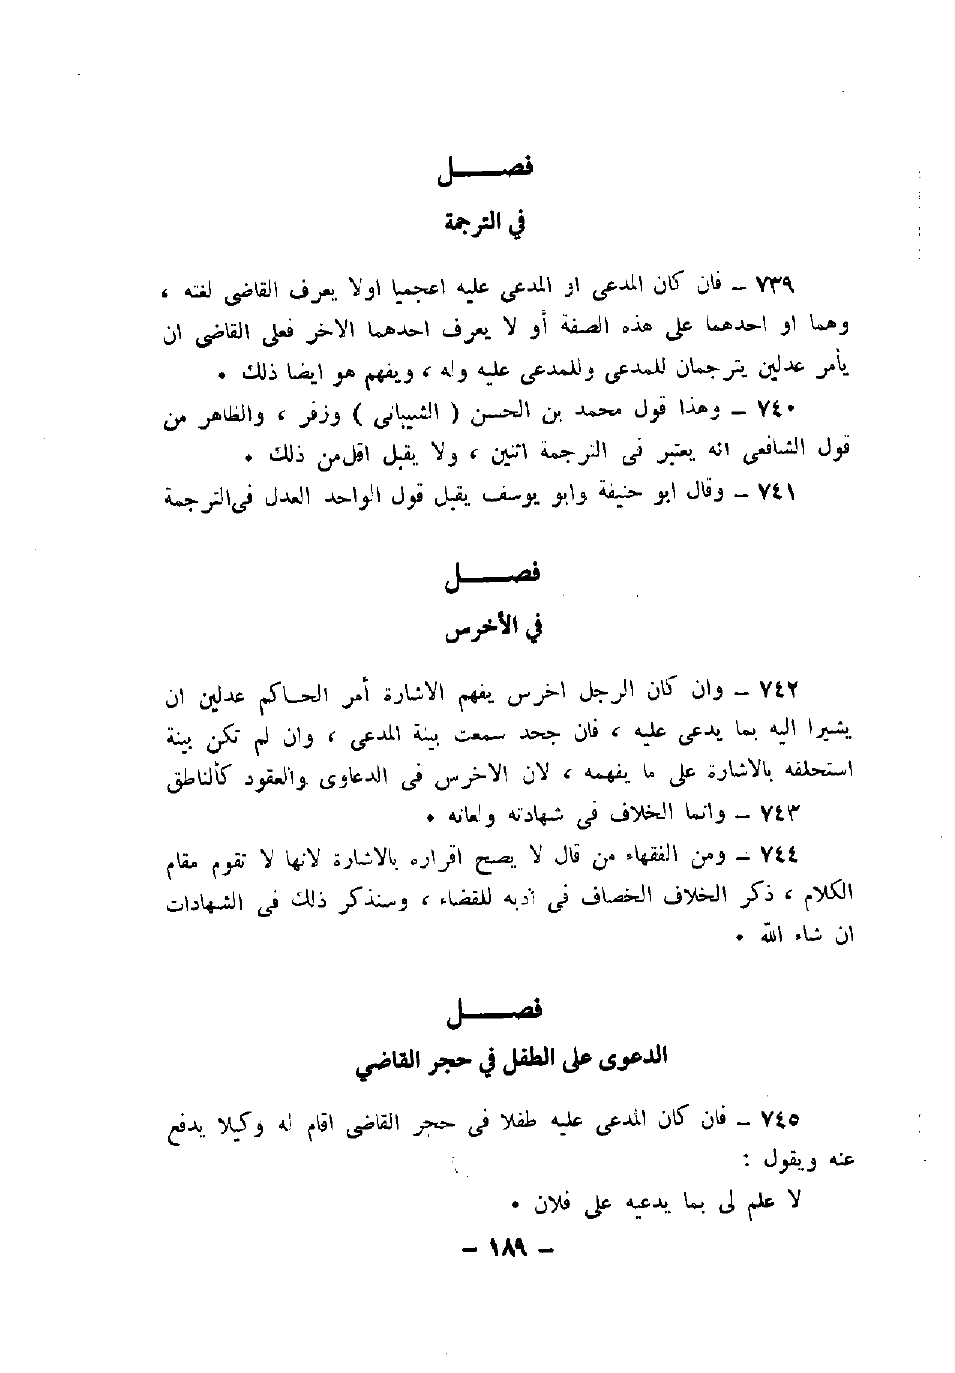 فصـــــل
في الترجمة
٧٣٩ ــ فان كان المدعى او المدعى عليه اعجميا اولا يعرف القاضى لغته ،
وهما او احدهما على هذه الصفة أو لا يعرف احدهما الآخر فعلى القاضى ان
يأمر عدلين يترجمان للمدعى وللمدعى عليه وله ، ويفهم هو ايضا ذلك ٠
٧٤٠ ــ وهذا قول محمد بن الحسن ( الشيبانى ) وزفر ، والظاهر من
قول الشافعى انه يعتبر فى الترجمة اثنين ، ولا يقبل اقل من ذلك ٠
٧٤١ ــ وقال ابو حنيفة وابو يوسف يقبل قول الواحد العدل فى الترجمة
فصـــــل
في الأخرس
٧٤٢ ــ وان كان الرجل اخرس يفهم الاشارة أمر الحاكم عدلين ان
يشيرا اليه بما يدعى عليه ، فان جحد سمعت بينة المدعى ، وان لم تكن بينة
استحلفه بالاشارة على ما يفهمه ، لان الاخرس فى الدعاوى والعقود كالناطق
٧٤٣ ــ وانما الخلاف فى شهادته ولعانه ٠
٧٤٤ ــ ومن الفقهاء من قال لا يصح اقراره بالاشارة لانها لا تقوم مقام
الكلام ، ذكر الخلاف الخصاف فى أدبه للقضاء ، وسنذكر ذلك فى الشهادات
ان شاء الله ٠
فصـــــل
الدعوى على الطفل في حجر القاضي
٧٤٥ ــ فان كان المدعى عليه طفلا فى حجر القاضى اقام له وكيلا يدفع
عنه ويقول :
لا علم لى بما يدعيه على فلان ٠
ــ ١٨٩ ــ